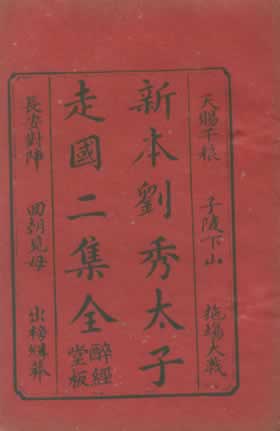 天賜干粮 子陵下山 大戰
新本劉秀太子
走國二集全
醉經
堂板
長安對陣 回朝見母 出榜